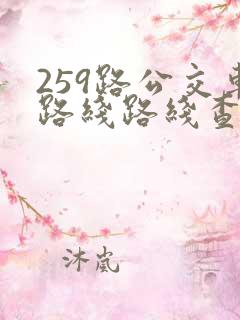 259路公交车
路线路线查
沐岚